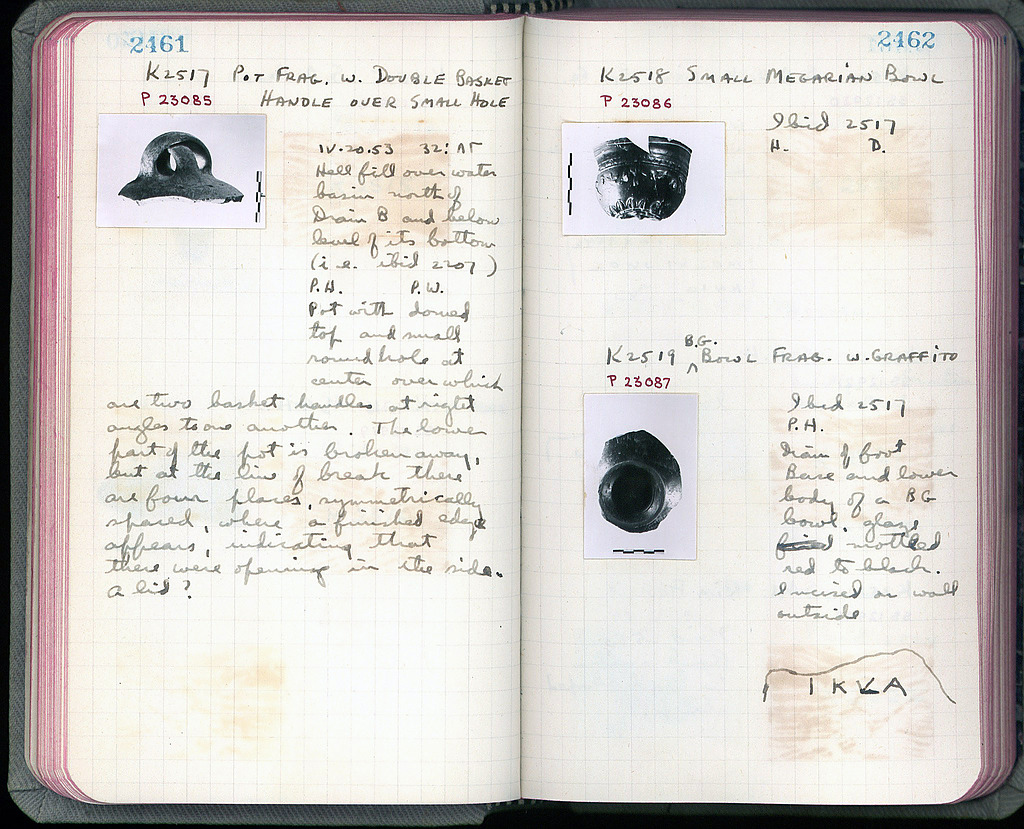 2461
K2517 POT FRAG. W. DOUBLE BASKET
P 23085 HANDLE OVER SMALL HOLE
IV.20.53 32: ΛΓ
Hell fill over water
basin north of
Drain B and below
level of its bottom
(i.e. ibid 2207)
P.H. P.W.
Pot with domed
top and small
round hole at
center over which
are two basket handles at right
angles to one another. The lower
part of the pot is broken away,
but at the line of break there
are four places, symmetrically
spaced, where a finished edge
appears, indicating that
there were openings in the side.
A lid?
2462
K2518 SMALL MEGARIAN BOWL
P 23086
Ibid 2517
H. D.
B.G.
K2519 BOWL FRAG. W. GRAFFITO
P 23087
Ibid 2517
P.H.
Diam of foot
Base and lower
body of a BG
bowl, glaze
fired mottled
red to black.
Incised on wall
outside